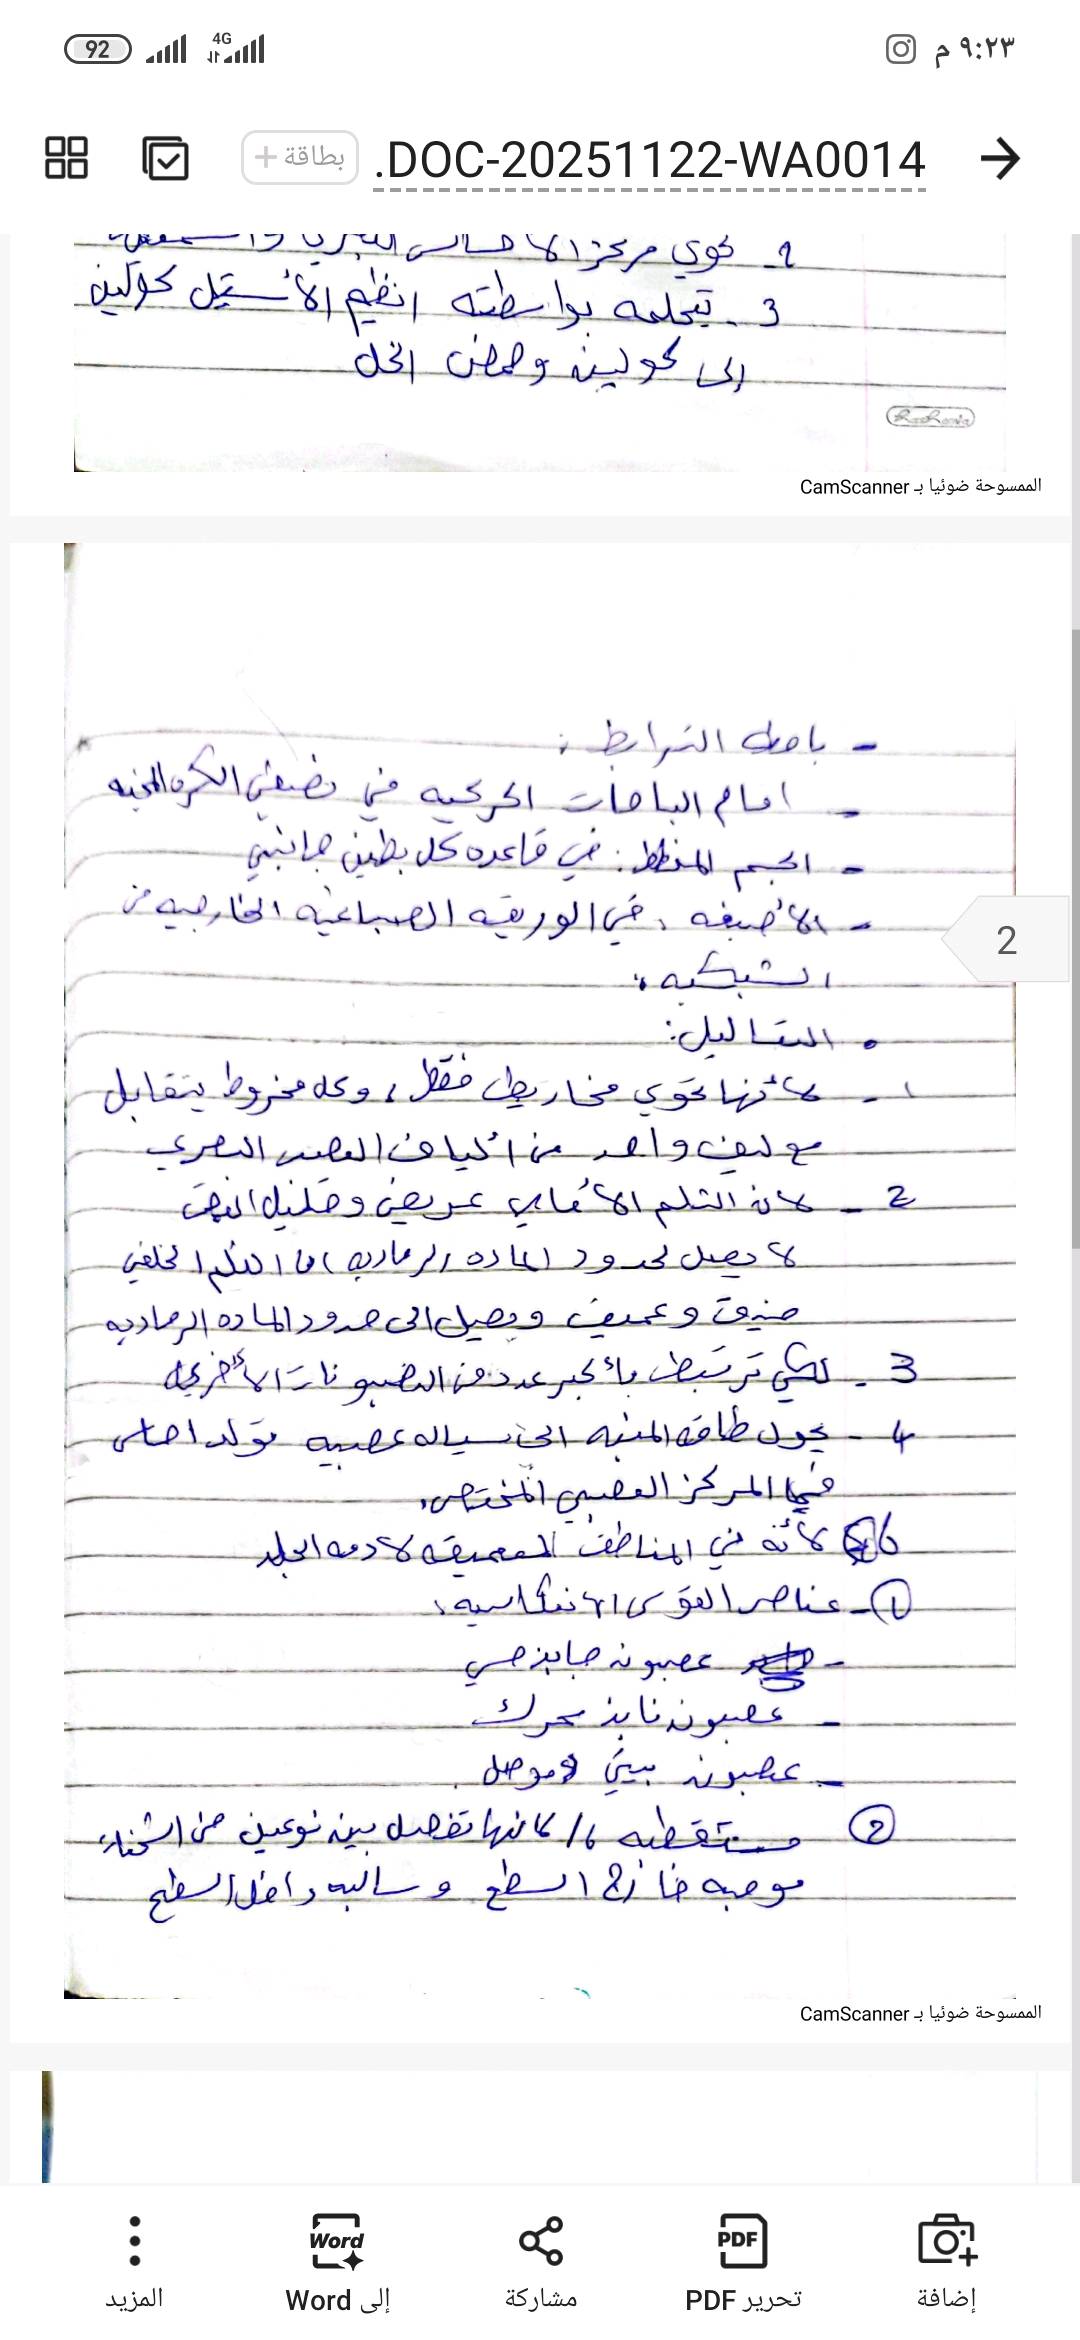 92 4G ٩:٢٣ م
.DOC-20251122-WA0014 بطاقة +
2- تحوي مركز الاحساس
3- تتحلمه بواسطته انظيم الأستيل كولين
إلى كولين وحمض الخل
الممسوحة ضوئيا بـ CamScanner
- باحات الترابط :
- امام الباحات الحركيه في نصفي الكره المخيه
- الجسم المخطط : في قاعده كل بطين جانبي
- الأصبغه : في الوريقه الصباغيه الخارجيه من
الشبكيه ،
• التعاليل :
1- لأنها تحوي مخاريط فقط ، وكل مخروط يتقابل
مع ليف واحد من ألياف العصب البصري
2- لان الثلم الأمامي عريض وقليل العمق
لا يصل لحدود الماده الرماديه اما الثلم الخلفي
ضيق وعميق ويصل الى حدود الماده الرماديه
3- لكي ترتبط بأكبر عدد من العصبونات الأخرى
4- يحول طاقه المنبه الى سياله عصبيه تولد احساس
في المركز العصبي المختص ،
6 لأنه في المناطق العميقه لادمه الجلد
① - عناصر القوس الانعكاسيه ،
- عصبون جابذ حسي
- عصبون نابذ محرك
- عصبون بيني موصل
② مستقطبه / لانها تفصل بين نوعين من الشحنات
موجبه خارج السطح وسالبه داخل السطح
2
الممسوحة ضوئيا بـ CamScanner
إضافة
تحرير PDF
مشاركة
إلى Word
المزيد